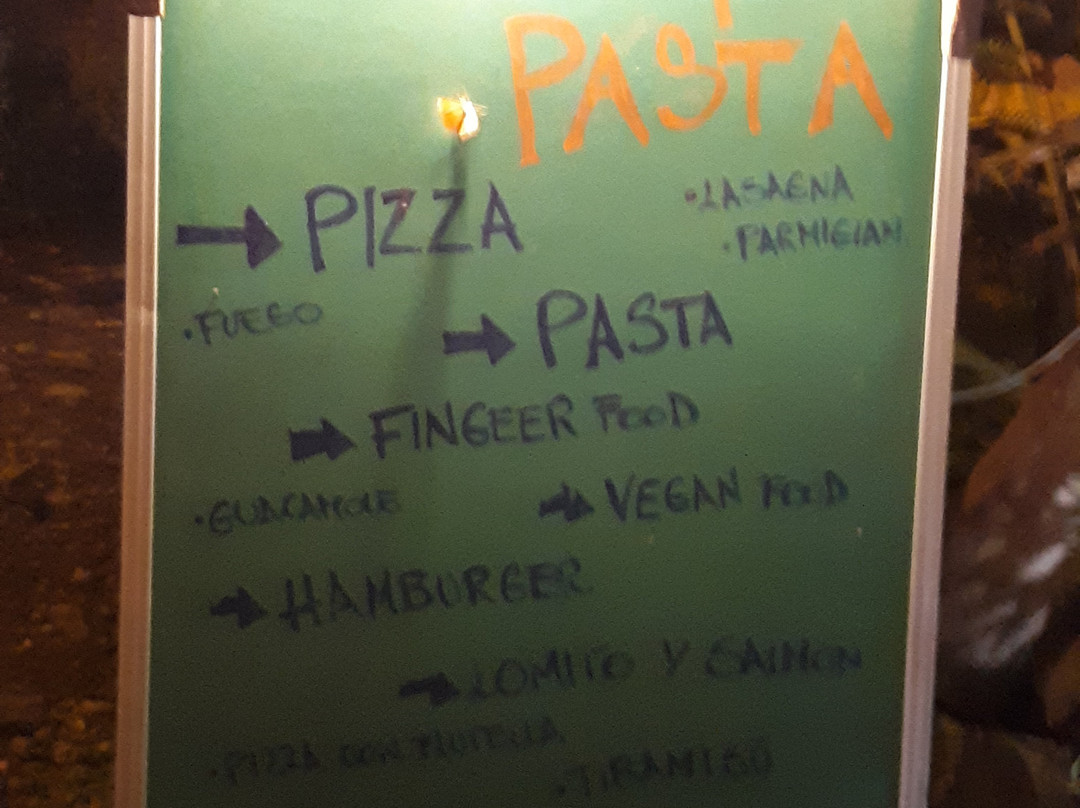 PASTA
→ PIZZA
• LASAGNA
• PARMIGIAN
• FUEGO
→ PASTA
→ FINGEER FOOD
• GUACAMOLE
→ VEGAN FOOD
→ HAMBURGER
→ LOMITO Y SALMON
• PIZZA CON NUTELLA
• TIRAMISÚ